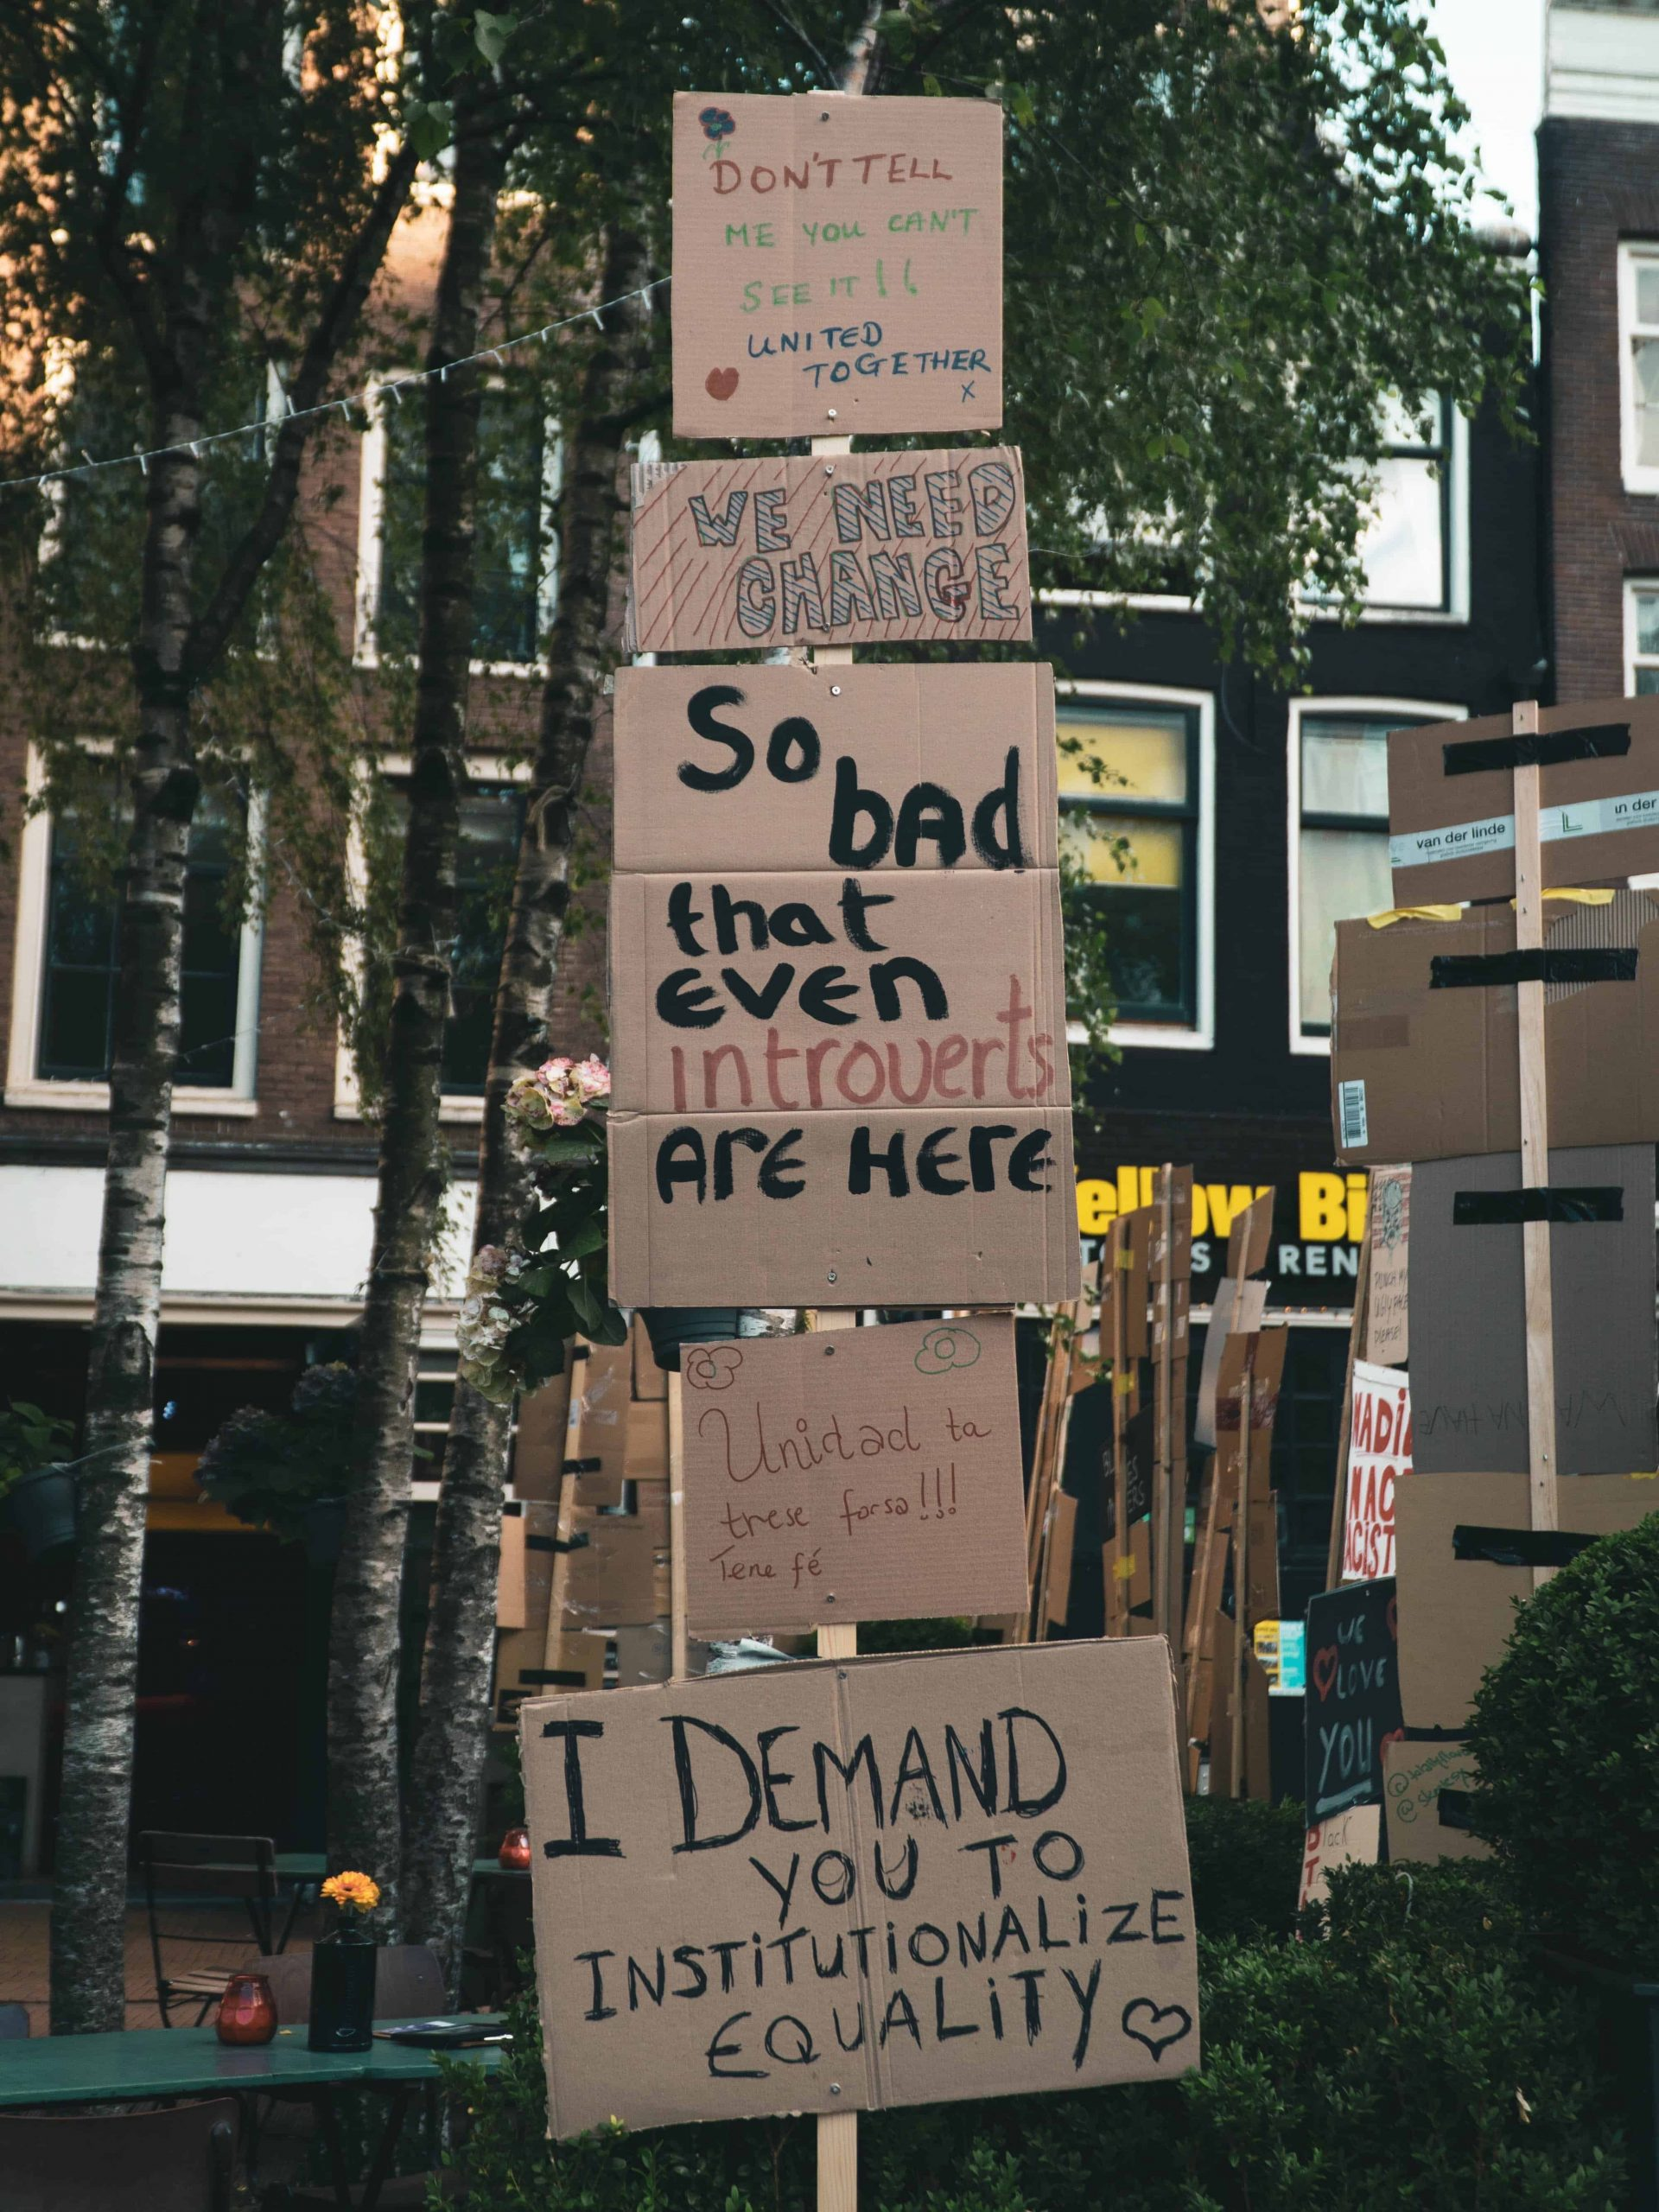 DON'T TELL
ME YOU CAN'T
SEE IT!!
UNITED
TOGETHER
x
WE NEED
CHANGE
So
bAd
that
EVEn
introverts
t
ArE HErE
Unidad ta
trese forsa!!!
Tene fé
I DEMAND
YOU TO
INSTiTUTiONALiZE
EQUALiTY
van der linde
ellow Bi
REN
WANNA HAVE
PUNCH MY
UGLY FACE
please!
WE
LOVE
YOU